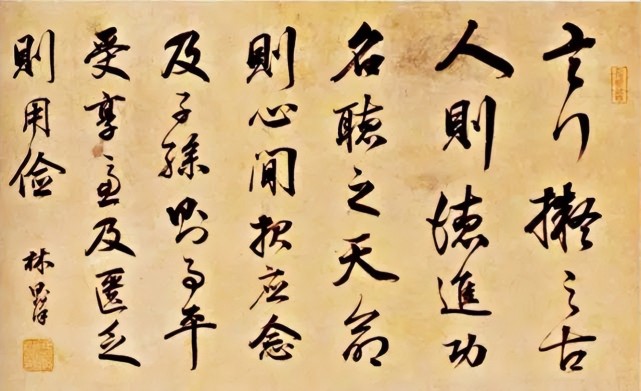 言行擬之古
人則德進功
名聽之天命
則心閒報應念
及子孫則事平
受享慮及匱乏
則用儉
林則徐